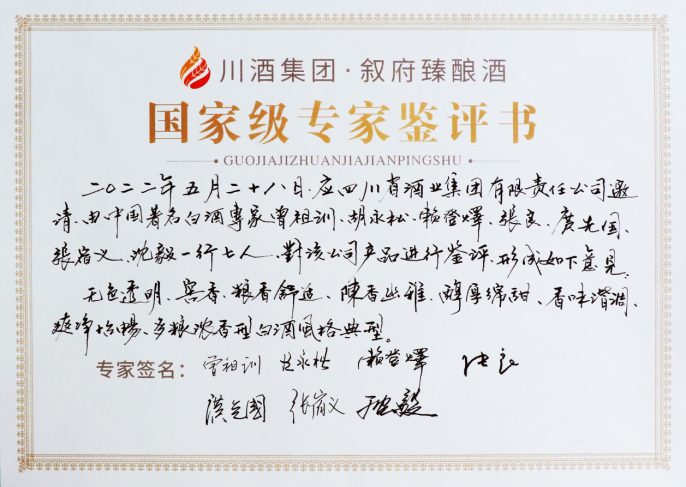 川酒集团·叙府臻酿酒
国家级专家鉴评书
GUOJIAJIZHUANJIAJIANPINGSHU
二〇二二年五月二十八日、应四川省酒业集团有限责任公司邀
请、由中国著名白酒專家曾祖训、胡永松、赖登燡、張良、庹先国、
張宿义、沈毅一行七人、對該公司产品进行鉴评、形成如下意见。
无色透明、窖香、粮香舒适、陳香幽雅、醇厚绵甜、香味谐调、
爽净怡畅、多粮浓香型白酒风格典型。
专家签名：曾祖训 胡永松 赖登燡 张良
庹先國 张宿义 沈毅